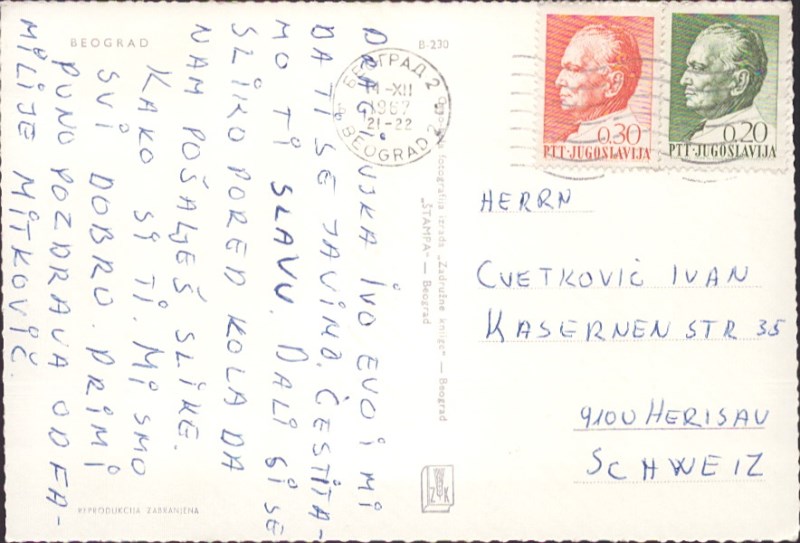 BEOGRAD
B-230
DRAGI UJKA IVO EVO I MI
DA TI SE JAVIMO. ČESTITA-
MO TI SLAVU. DALI SI SE
SLIKO PORED KOLA DA
NAM POŠALJEŠ SLIKE.
KAKO SI TI. MI SMO
SVI DOBRO. PRIMI
PUNO POZDRAVA OD FA-
MILIJE MITKOVIĆ.
REPRODUKCIJA ZABRANJENA
fotografija izrada „Zadružne knjige" — Beograd
„ŠTAMPA" — Beograd
ZK
БЕОГРАД 2
-XII
1967
21-22
BEOGRAD 2
0.30
PTT·JUGOSLAVIJA
0.20
PTT·JUGOSLAVIJA
HERRN
CVETKOVIĆ IVAN
KASERNEN STR 35
9100 HERISAU
SCHWEIZ